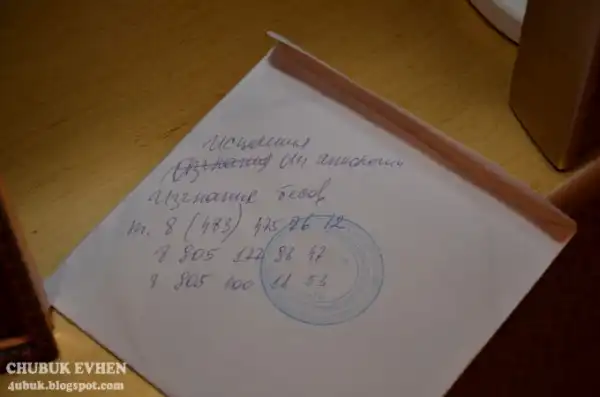 Исцеления
Изгнания От
Изгнание бесов
т. 8 (483) 475 26 12
8 905 177 86 47
8 905 100 11 53
CHUBUK EVHEN
4ubuk.blogspot.com